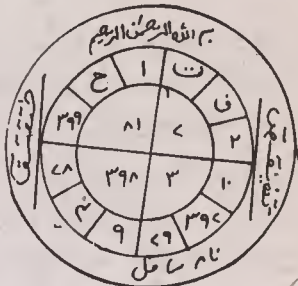 بسم الله الرحمن الرحيم
ح ا ت ف ۲ ۱۰ ۳۹۷ ۷۹ ۹ ۷۸ ۳۹۹
۷ ۸۱
۳ ۳۹۸
نام سائل